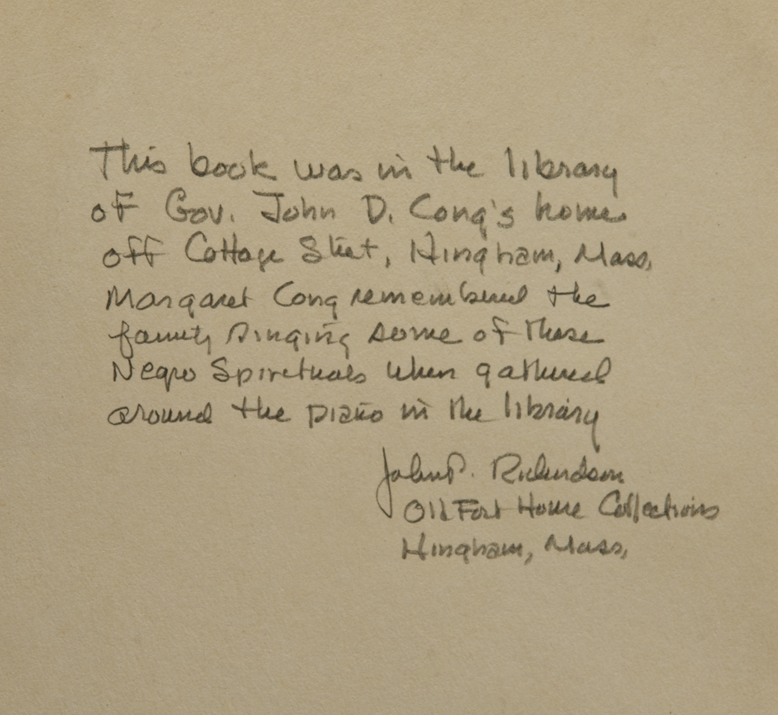 This book was in the library
of Gov. John D. Long's home
off Cottage Street, Hingham, Mass.
Margaret Long remembered the
family singing some of these
Negro Spirituals when gathered
around the piano in the library
John P. Richardson
Old Fort Home Collections
Hingham, Mass.